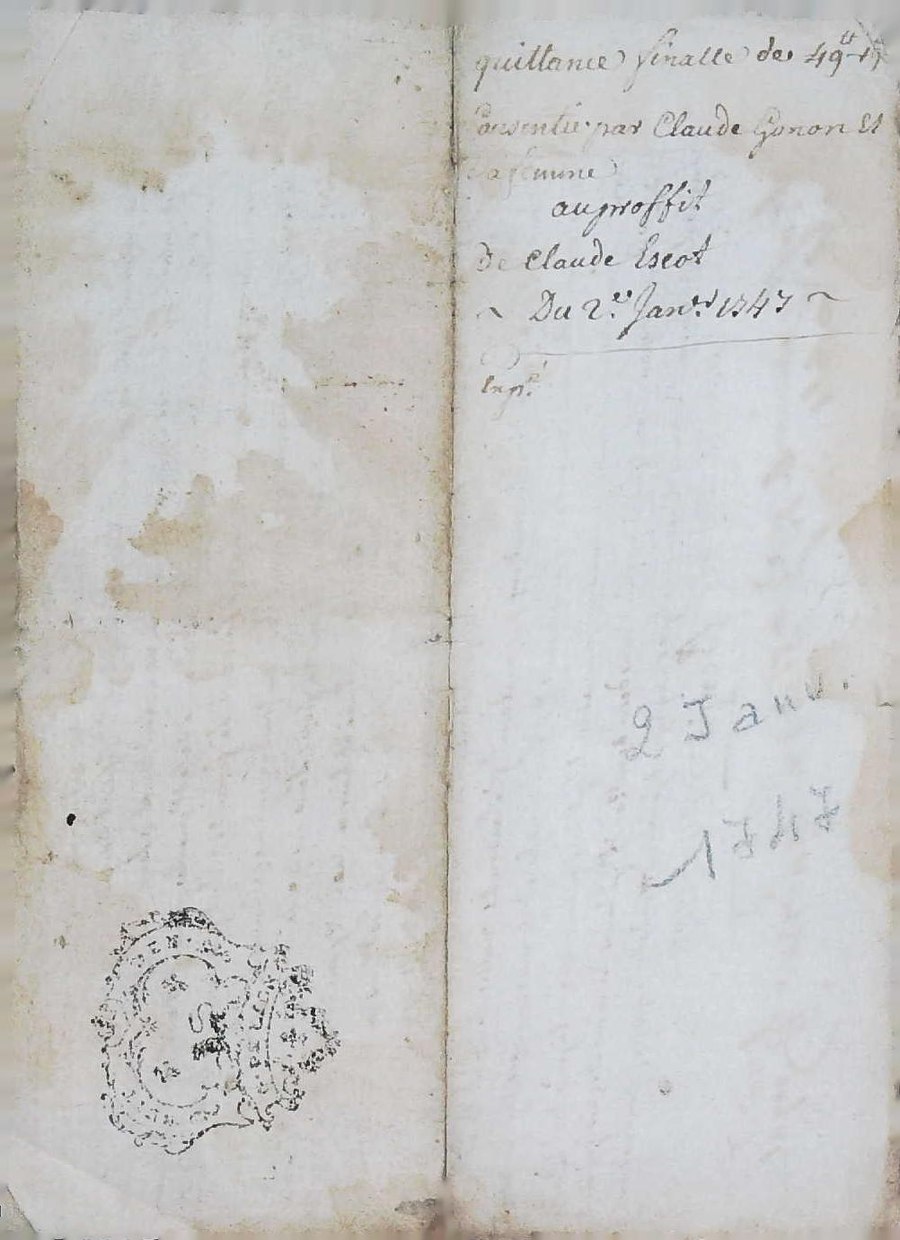 quittance finalle de 49ᵗᵗ 19ˢ
Consentie par Claude Gonon Et
sa femme
au proffit
De Claude Escot
~ Du 2.ᵉ Janᵛ.ʳ 1747 ~
Exp.ᵉ
2 Janv.
1747